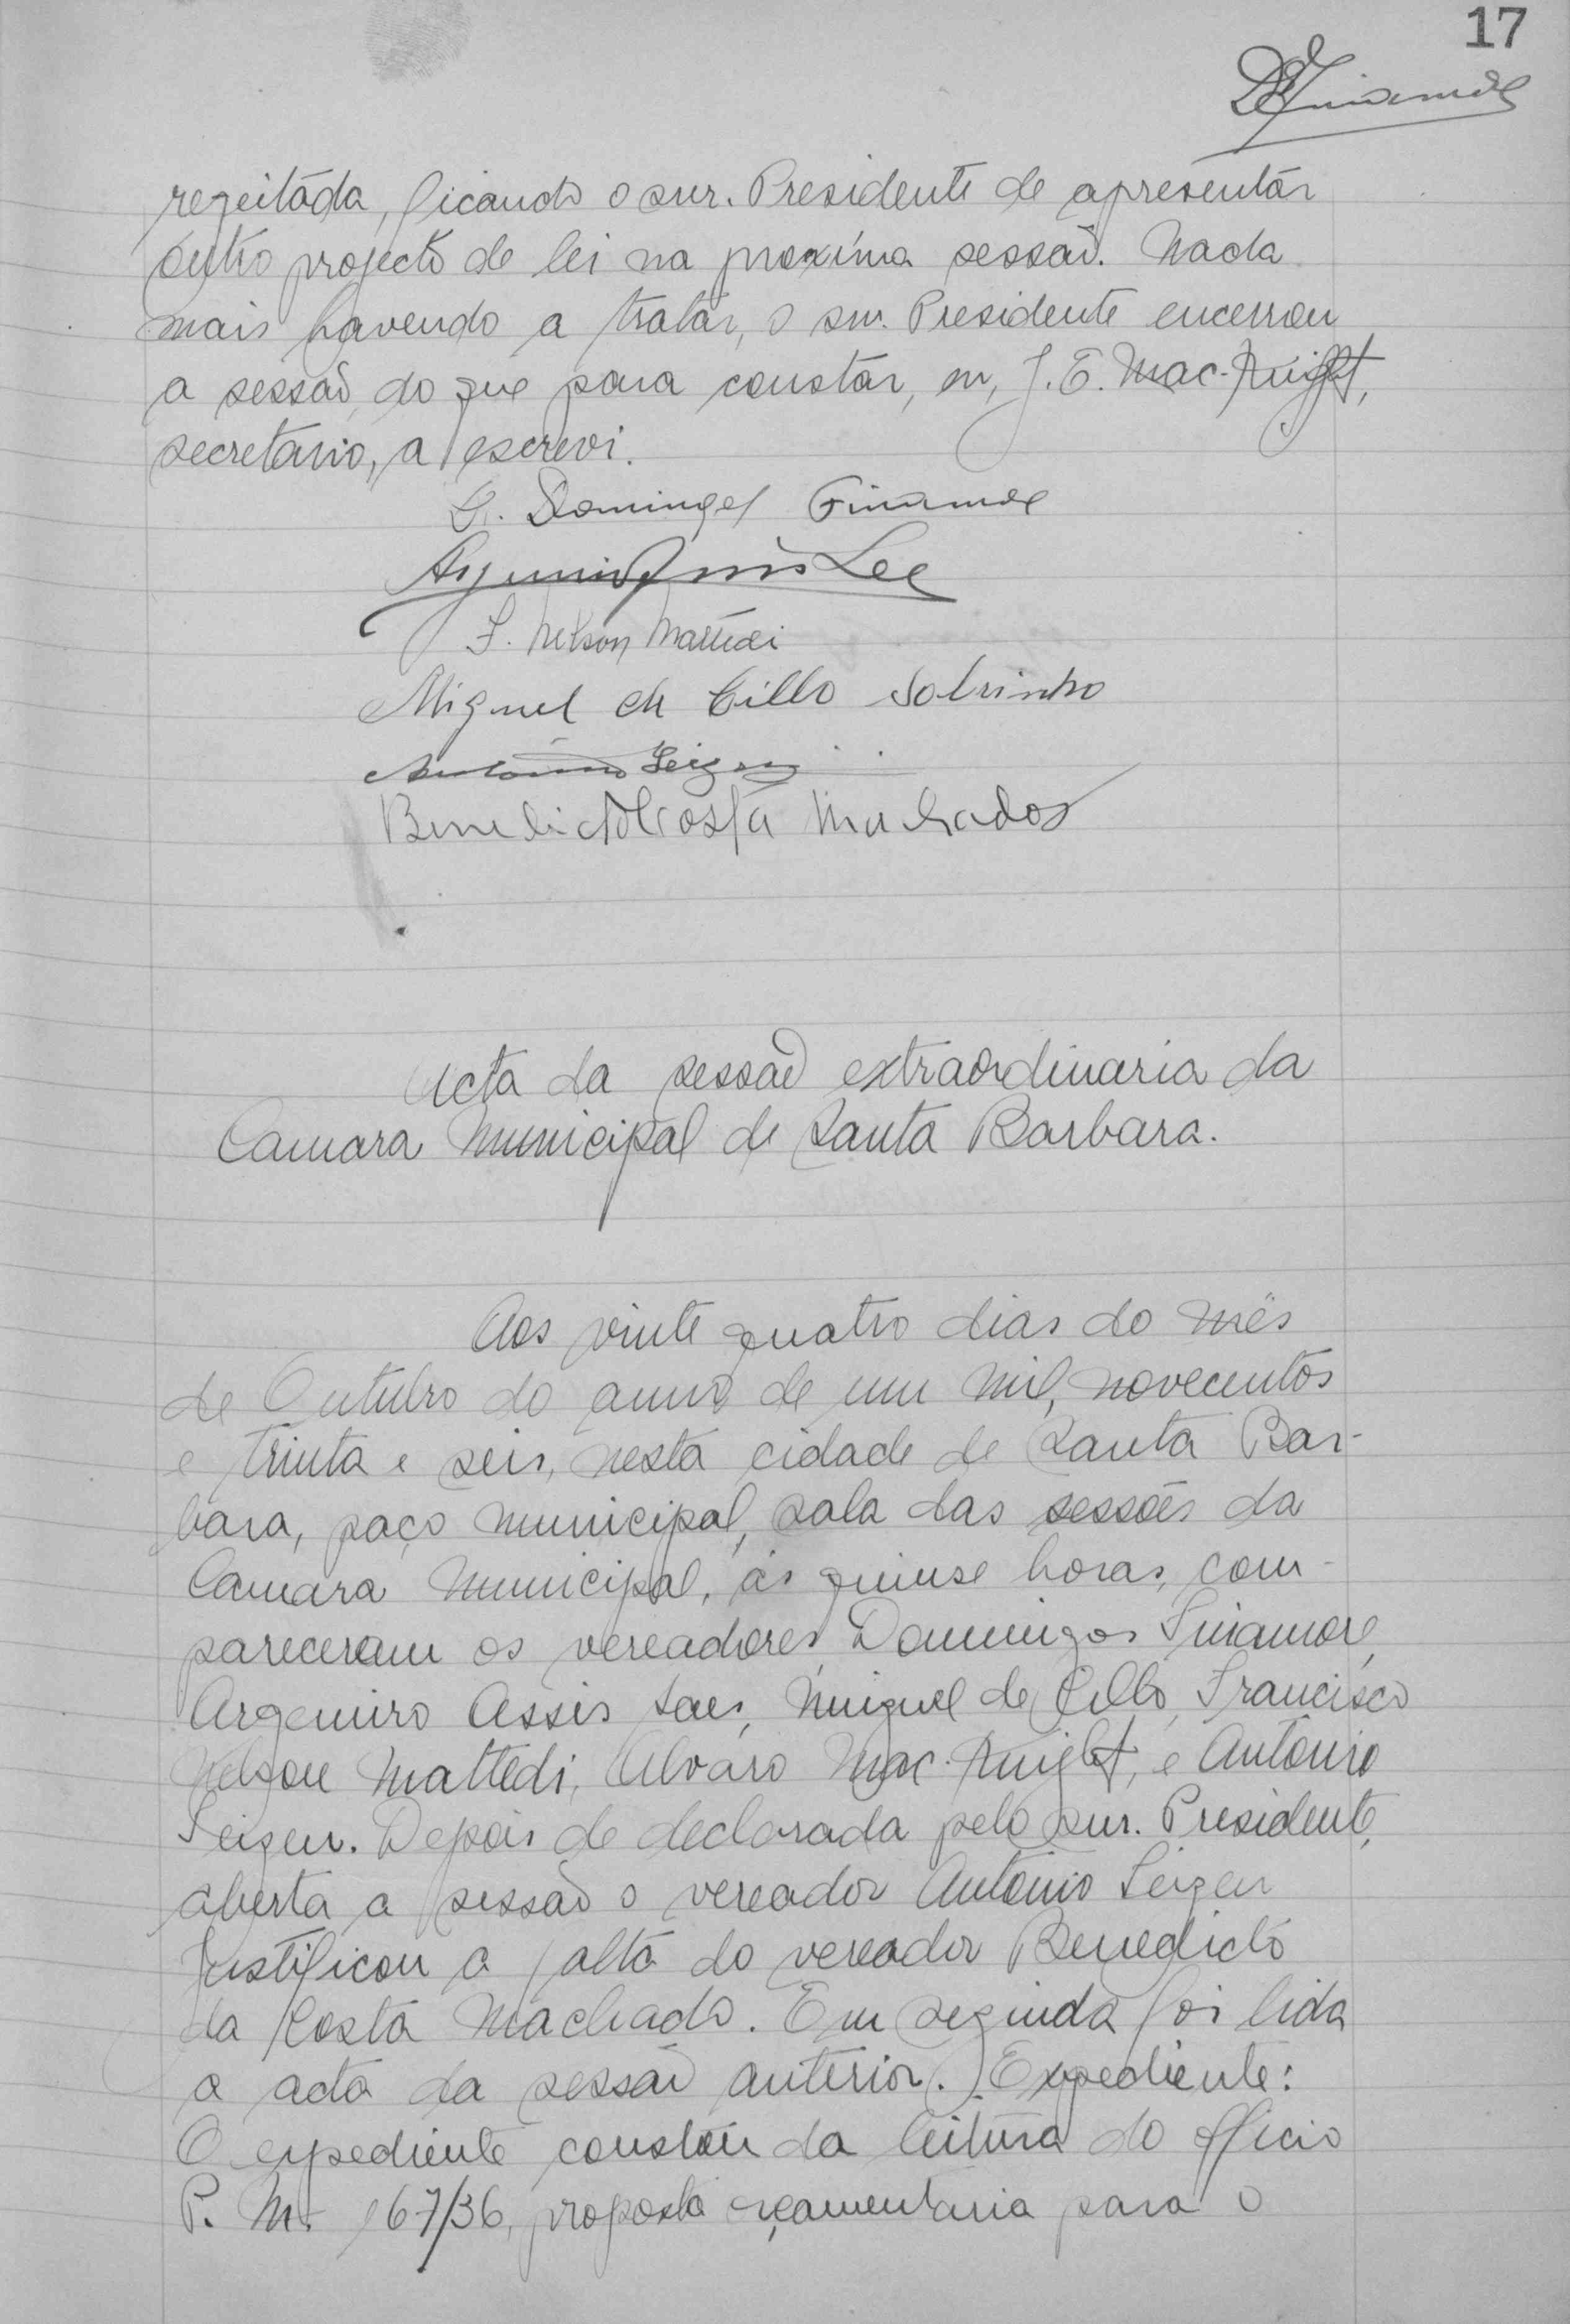 17
DFinamore
regeitada, ficando o snr. Presidente de apresentar
outro projecto de lei na proxima sessão. Nada
mais havendo a tratar, o snr. Presidente encerrou
a sessão, do que para constar, eu, J. E. Mac-Knight,
secretario, a escrevi.
Domingos Finamore
Lee
F. Nelson Mattedi
Miguel de Cillo Sobrinho
Antonio
Benedicto Costa Machado
Acta da sessão extraordinaria da
Camara Municipal de Santa Barbara.
Aos vinte quatro dias do mês
de Outubro do anno de um mil, novecentos
e trinta e seis, nesta cidade de Santa Bar-
bara, paço municipal, sala das sessões da
Camara Municipal, ás quinse horas, com-
pareceram os vereadores, Domingos Finamore,
Argemiro Assis Saes, Miguel de Cillo, Francisco
Nelson Mattedi, Alvaro Mac-Knight, e Antonio
Depois de declarada pelo snr. Presidente,
aberta a sessão o vereador Antonio
Justificou a falta do vereador Benedicto
da Costa Machado. Em seguida foi lida
a acta da sessão anterior. Expediente:
O expediente constou da leitura do officio
P. M. 167/36, proposta orçamentaria para o